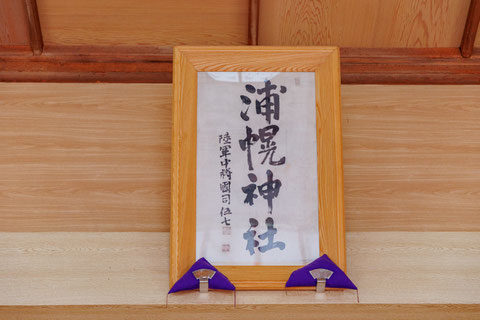 浦幌神社
陸軍中将國司伍七